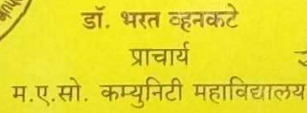 डॉ. भरत व्हनकटे
प्राचार्य
म.ए.सो. कम्युनिटी महाविद्यालय